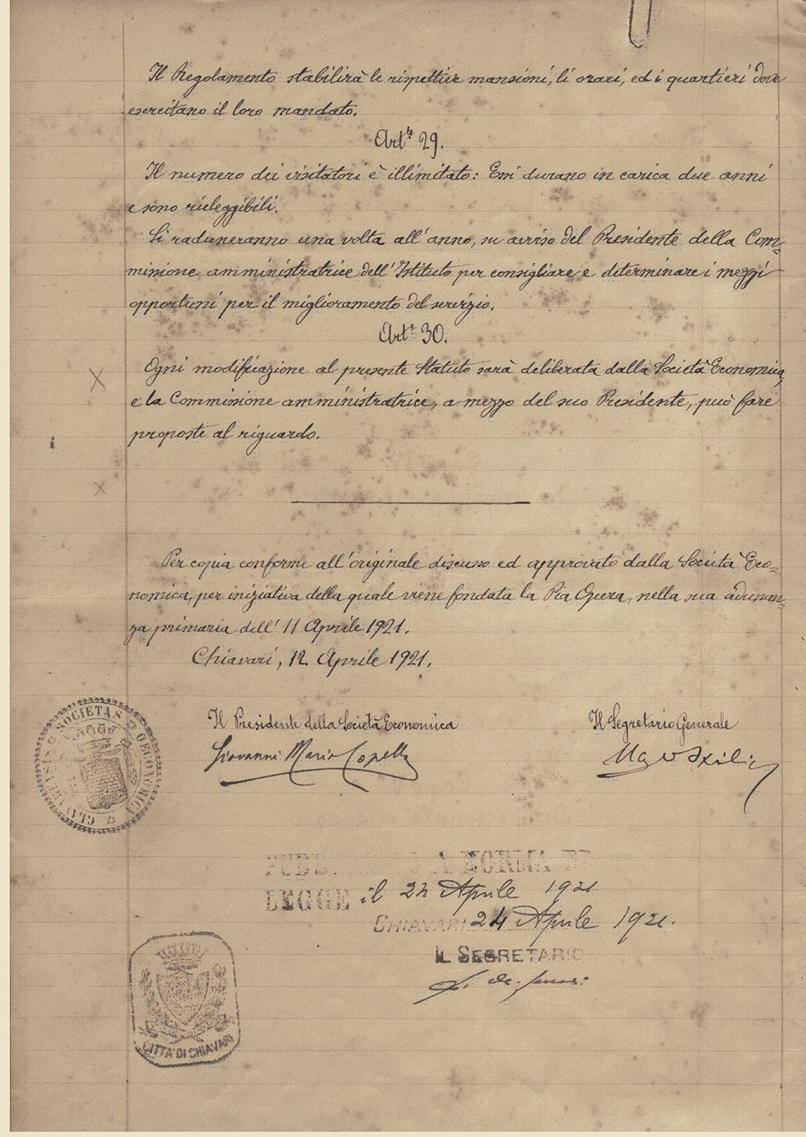 Il Regolamento stabilirà le rispettive mansioni, li orari, ed i quartieri dove
esercitano il loro mandato.
Art.° 29.
Il numero dei visitatori è illimitato: Essi durano in carica due anni
e sono rieleggibili.
Si raduneranno una volta all'anno, su avviso del Presidente della Com=
missione amministratrice dell'Istituto per consigliare e determinare i mezzi
opportuni per il miglioramento del servizio.
Art.° 30.
Ogni modificazione al presente Statuto sarà deliberata dalla Società Economica,
e la Commissione amministratrice, a mezzo del suo Presidente, può fare
proposte al riguardo.
Per copia conforme all'originale discusso ed approvato dalla Società Eco=
nomica, per iniziativa della quale viene fondata la Pia Opera, nella sua adunan=
za primaria dell' 11 Aprile 1921.
Chiavari, 12 Aprile 1921.
Il Presidente della Società Economica
Il Segretario Generale
Giovanni Maria Copello
SOCIETAS OECONOMICA CLAVARENSIS
A NORMA DI
LEGGE il 24 Aprile 1921
CHIAVARI 24 Aprile 1921.
IL SEGRETARIO
CITTÀ DI CHIAVARI